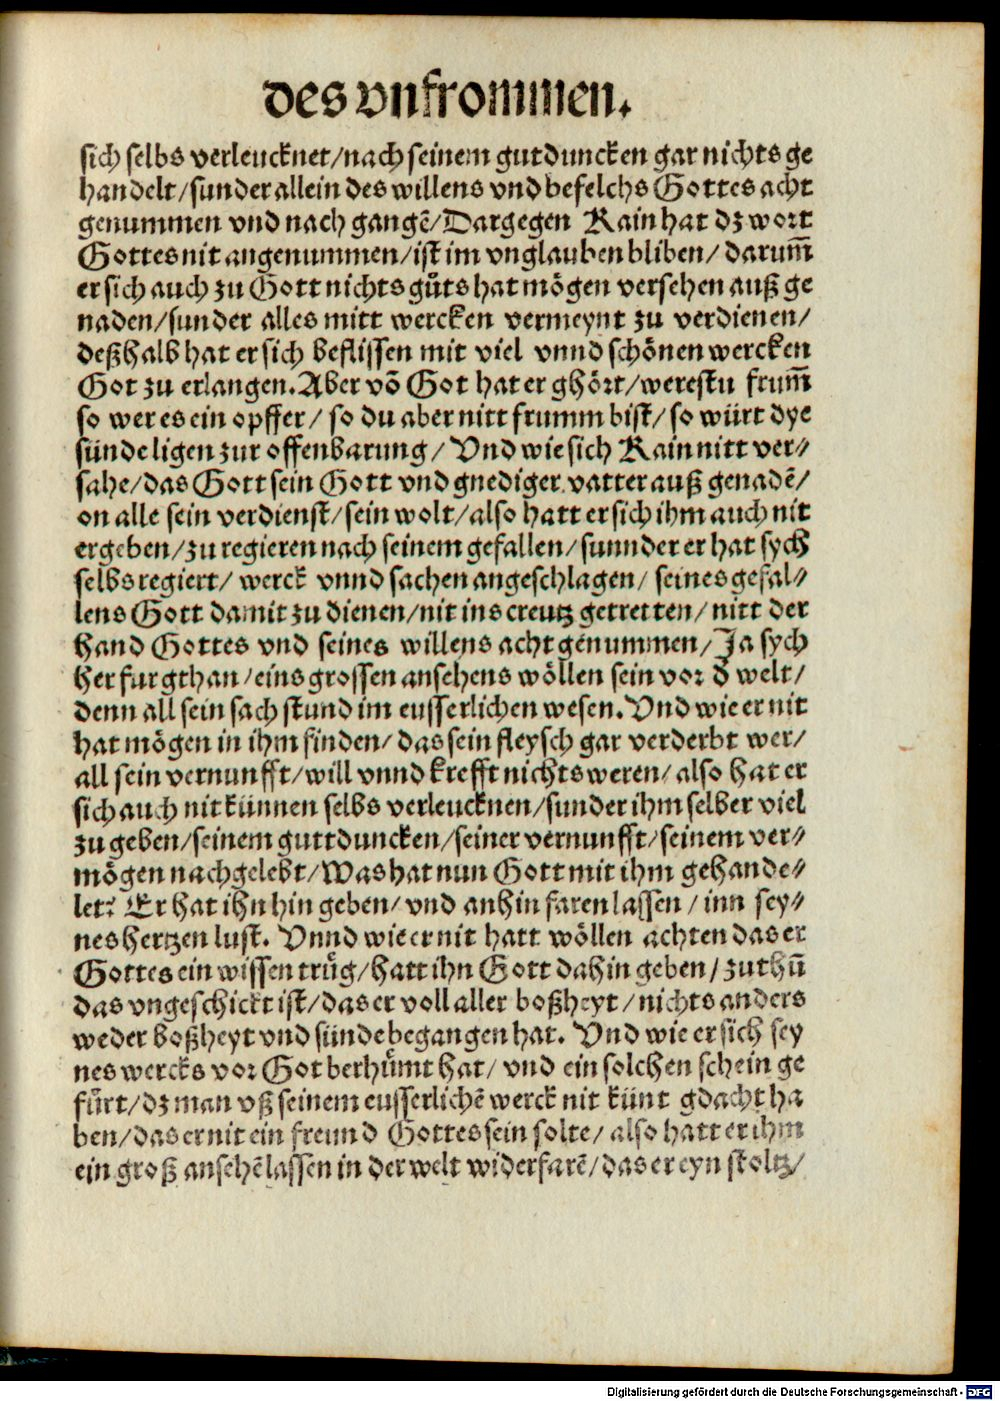 des vnfrommen.
sich selbs verleucknet/nach seinem gutduncken gar nichts ge
handelt/sunder allein des willens vnd befelchs Gottes acht
genummen vnd nach gangē/Dargegen Kain hat dz wort
Gottes nit angenummen/ist im vnglauben bliben/darum̄
er sich auch zu Gott nichts gůts hat mögen versehen auß ge
naden/sunder alles mitt wercken vermeynt zu verdienen/
deßhalb hat er sich beflissen mit viel vnnd schönen wercken
Got zu erlangen. Aber vō Got hat er ghört/werestu frum̄
so wer es ein opffer/so du aber nitt frumm bist/so würt dye
sünde ligen zur offenbarung/Vnd wie sich Kain nitt ver⸗
sahe/das Gott sein Gott vnd gnediger vatter auß genadē/
on alle sein verdienst/sein wolt/also hatt er sich ihm auch nit
ergeben/zu regieren nach seinem gefallen/sunnder er hat sych
selbs regiert/werck vnnd sachen angeschlagen/seines gefal⸗
lens Gott damit zu dienen/nit ins creutz getretten/nitt der
hand Gottes vnd seines willens acht genummen/Ja sych
her fur gthan/eins grossen ansehens wöllen sein vor d̄ welt/
denn all sein sach stund im eusserlichen wesen. Vnd wie er nit
hat mögen in ihm finden/das sein fleysch gar verderbt wer/
all sein vernunfft/will vnnd krefft nichts weren/also hat er
sich auch nit künnen selbs verleucknen/sunder ihm selber viel
zu geben/seinem guttduncken/seiner vernunfft/seinem ver⸗
mögen nachgelebt/Was hat nun Gott mit ihm gehande⸗
let? Er hat ihn hin geben/vnd anhin faren lassen/inn sey⸗
nes hertzen lust. Vnnd wie er nit hatt wöllen achten das er
Gottes ein wissen trůg/hatt ihn Gott dahin geben/zu thů̄
das vngeschickt ist/das er voll aller boßheyt/nichts anders
weder boßheyt vnd sünde begangen hat. Vnd wie er sich sey
nes wercks vor Got berhůmt hat/vnd ein solchen schein ge
fůrt/dz man vß seinem eusserlichē werck nit künt gdacht ha
ben/das er nit ein freund Gottes sein solte/also hatt er ihm
ein groß ansehē lassen in der welt widerfarē/das er eyn stoltz/
Digitalisierung gefördert durch die Deutsche Forschungsgemeinschaft - DFG